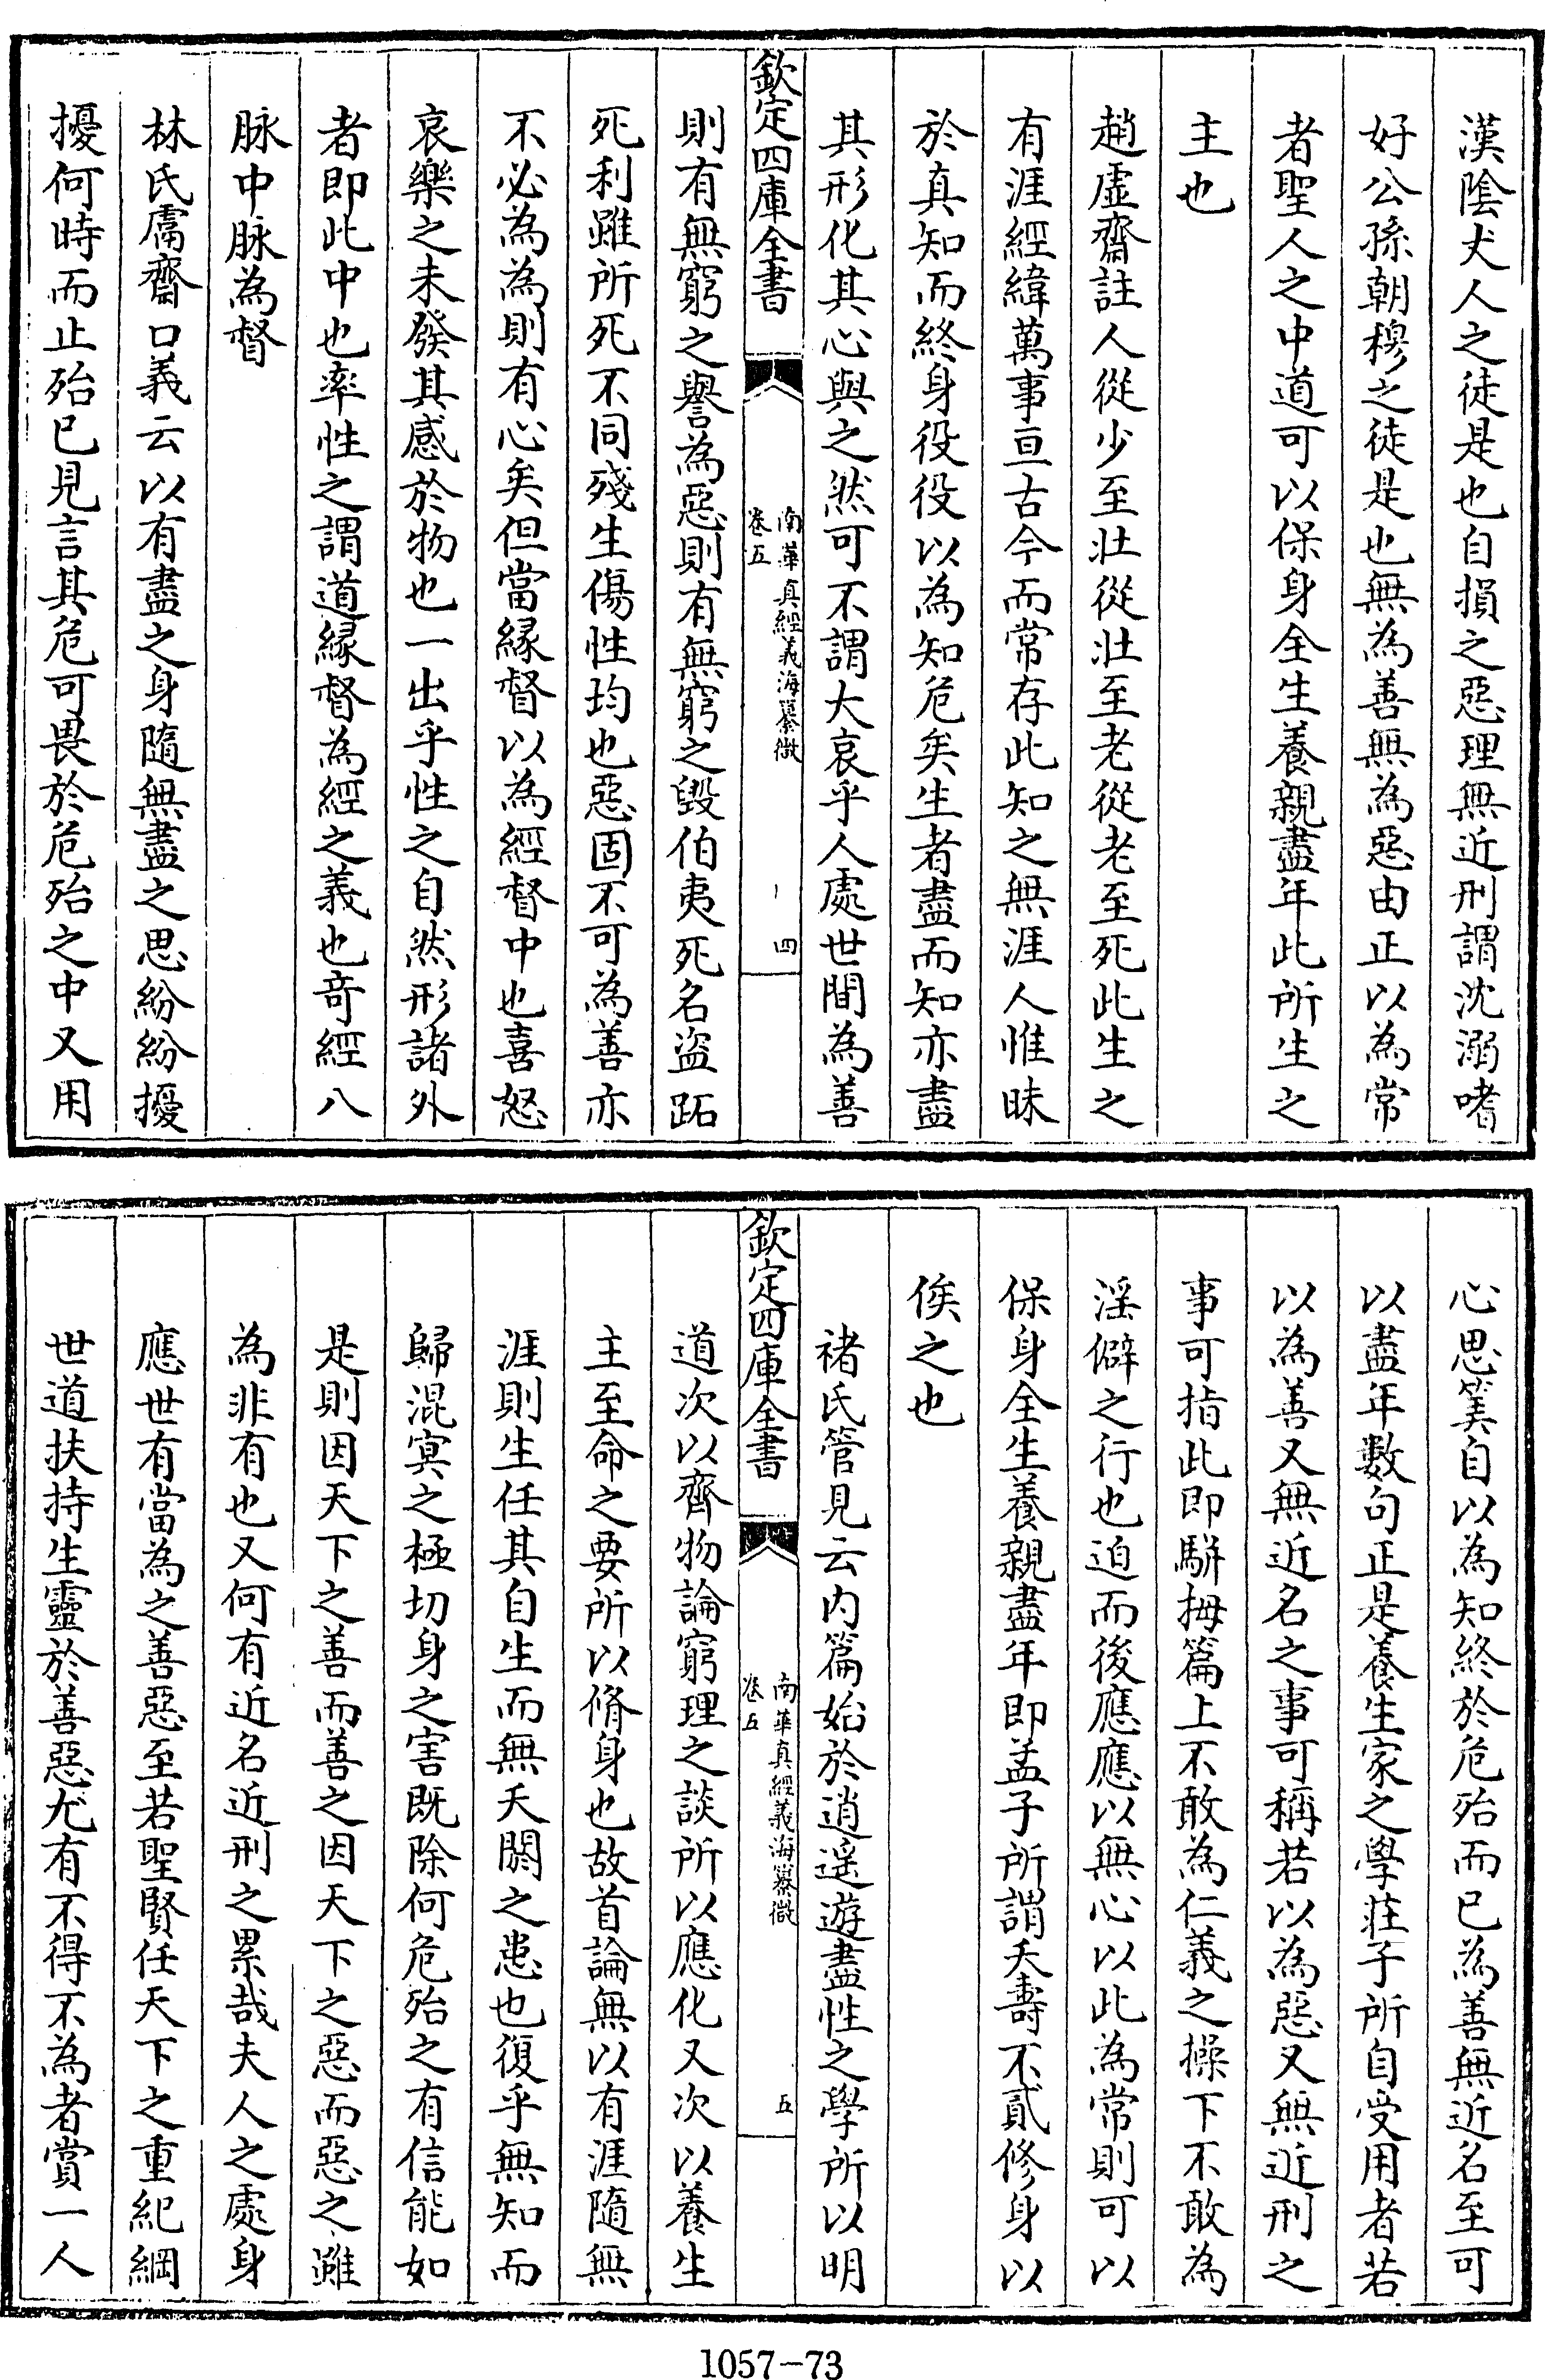 漢陰丈人之徒是也自損之惡理無近刑謂沈溺嗜
好公孫朝穆之徒是也無為善無為惡由正以為常
者聖人之中道可以保身全生養親盡年此所生之
主也
趙虛齋註人從少至壯從壯至老從老至死此生之
有涯經緯萬事亘古今而常存此知之無涯人惟昧
於真知而終身役役以為知危矣生者盡而知亦盡
其形化其心與之然可不謂大哀乎人處世間為善
欽定四庫全書
南華真經義海纂微
卷五
四
則有無窮之譽為惡則有無窮之毀伯夷死名盜跖
死利雖所死不同殘生傷性均也惡固不可為善亦
不必為為則有心矣但當緣督以為經督中也喜怒
哀樂之未發其感於物也一出乎性之自然形諸外
者即此中也率性之謂道緣督為經之義也奇經八
脉中脉為督
林氏鬳齋口義云以有盡之身隨無盡之思紛紛擾
擾何時而止殆已見言其危可畏於危殆之中又用
心思筭自以為知終於危殆而已為善無近名至可
以盡年數句正是養生家之學莊子所自受用者若
以為善又無近名之事可稱若以為惡又無近刑之
事可指此即駢拇篇上不敢為仁義之操下不敢為
淫僻之行也迫而後應應以無心以此為常則可以
保身全生養親盡年即孟子所謂夭壽不貳修身以
俟之也
褚氏管見云内篇始於逍遙遊盡性之學所以明
欽定四庫全書
南華真經義海纂微
卷五
五
道次以齊物論窮理之談所以應化又次以養生
主至命之要所以脩身也故首論無以有涯隨無
涯則生任其自生而無夭閼之患也復乎無知而
歸混冥之極切身之害既除何危殆之有信能如
是則因天下之善而善之因天下之惡而惡之雖
為非有也又何有近名近刑之累哉夫人之處身
應世有當為之善惡至若聖賢任天下之重紀綱
世道扶持生靈於善惡尤有不得不為者賞一人
1057-73